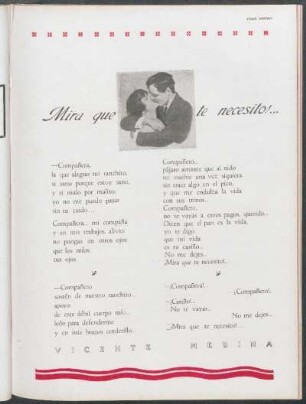 Mira que te necesito!...
—Compañera,
la que alegras mi ranchito,
si sano porque estoy sano,
y si malo por malito,
yo no me puedo pasar
sin tu
Compañera... mi compaña
y en mis trabajos, alivio:
no pongas en otros ojos
que los míos
tus ojos
—Compañero
sostén de nuestro ranchito...
apoyo
de este débil cuerpo mío...
león para defenderme
y en mis brazos corderillo...
Compañero...
pájaro amante que al nido
no vuelve una vez siquiera
sin traer algo en el pico,
y que me endulza la vida
con sus trinos...
Compañero,
no te vayas a otros pagos, querido...
Dicen que el pan es la vida,
yo te digo
que mi vida
es tu cariño...
No me dejes...
¡Mira que te necesito!...
—¡Compañera!
¡Compañero!...
—¡Cariño!...
No te vayas...
No me dejes...
¡Mira que te necesito!...
VICENTE MEDINA